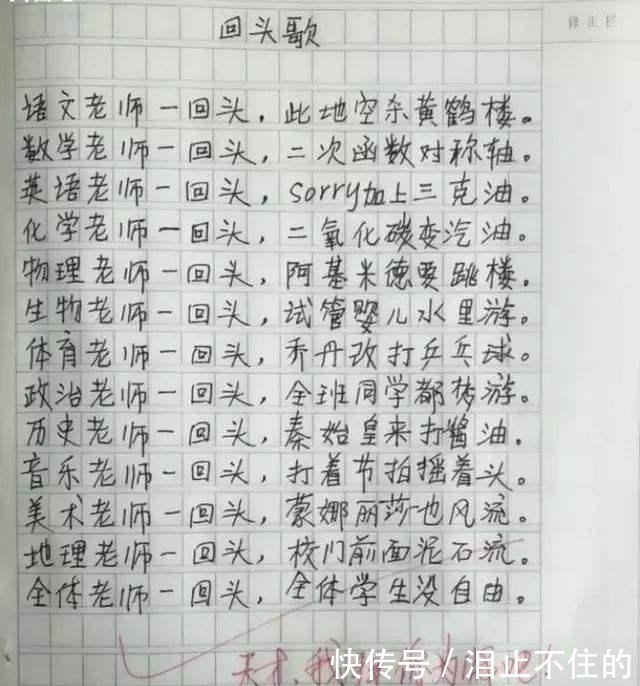 回头歌
修正栏
语文老师一回头，此地空杀黄鹤楼。
数学老师一回头，二次函数对称轴。
英语老师一回头，sorry加上三克油。
化学老师一回头，二氧化碳变汽油。
物理老师一回头，阿基米德要跳楼。
生物老师一回头，试管婴儿水里游。
体育老师一回头，乔丹改打乒乓球。
政治老师一回头，全班同学都梦游。
历史老师一回头，秦始皇来打酱油。
音乐老师一回头，打着节拍摇着头。
美术老师一回头，蒙娜丽莎也风流。
地理老师一回头，校门前面泥石流。
全体老师一回头，全体学生没自由。
天才，我
快传号/泪止不住的